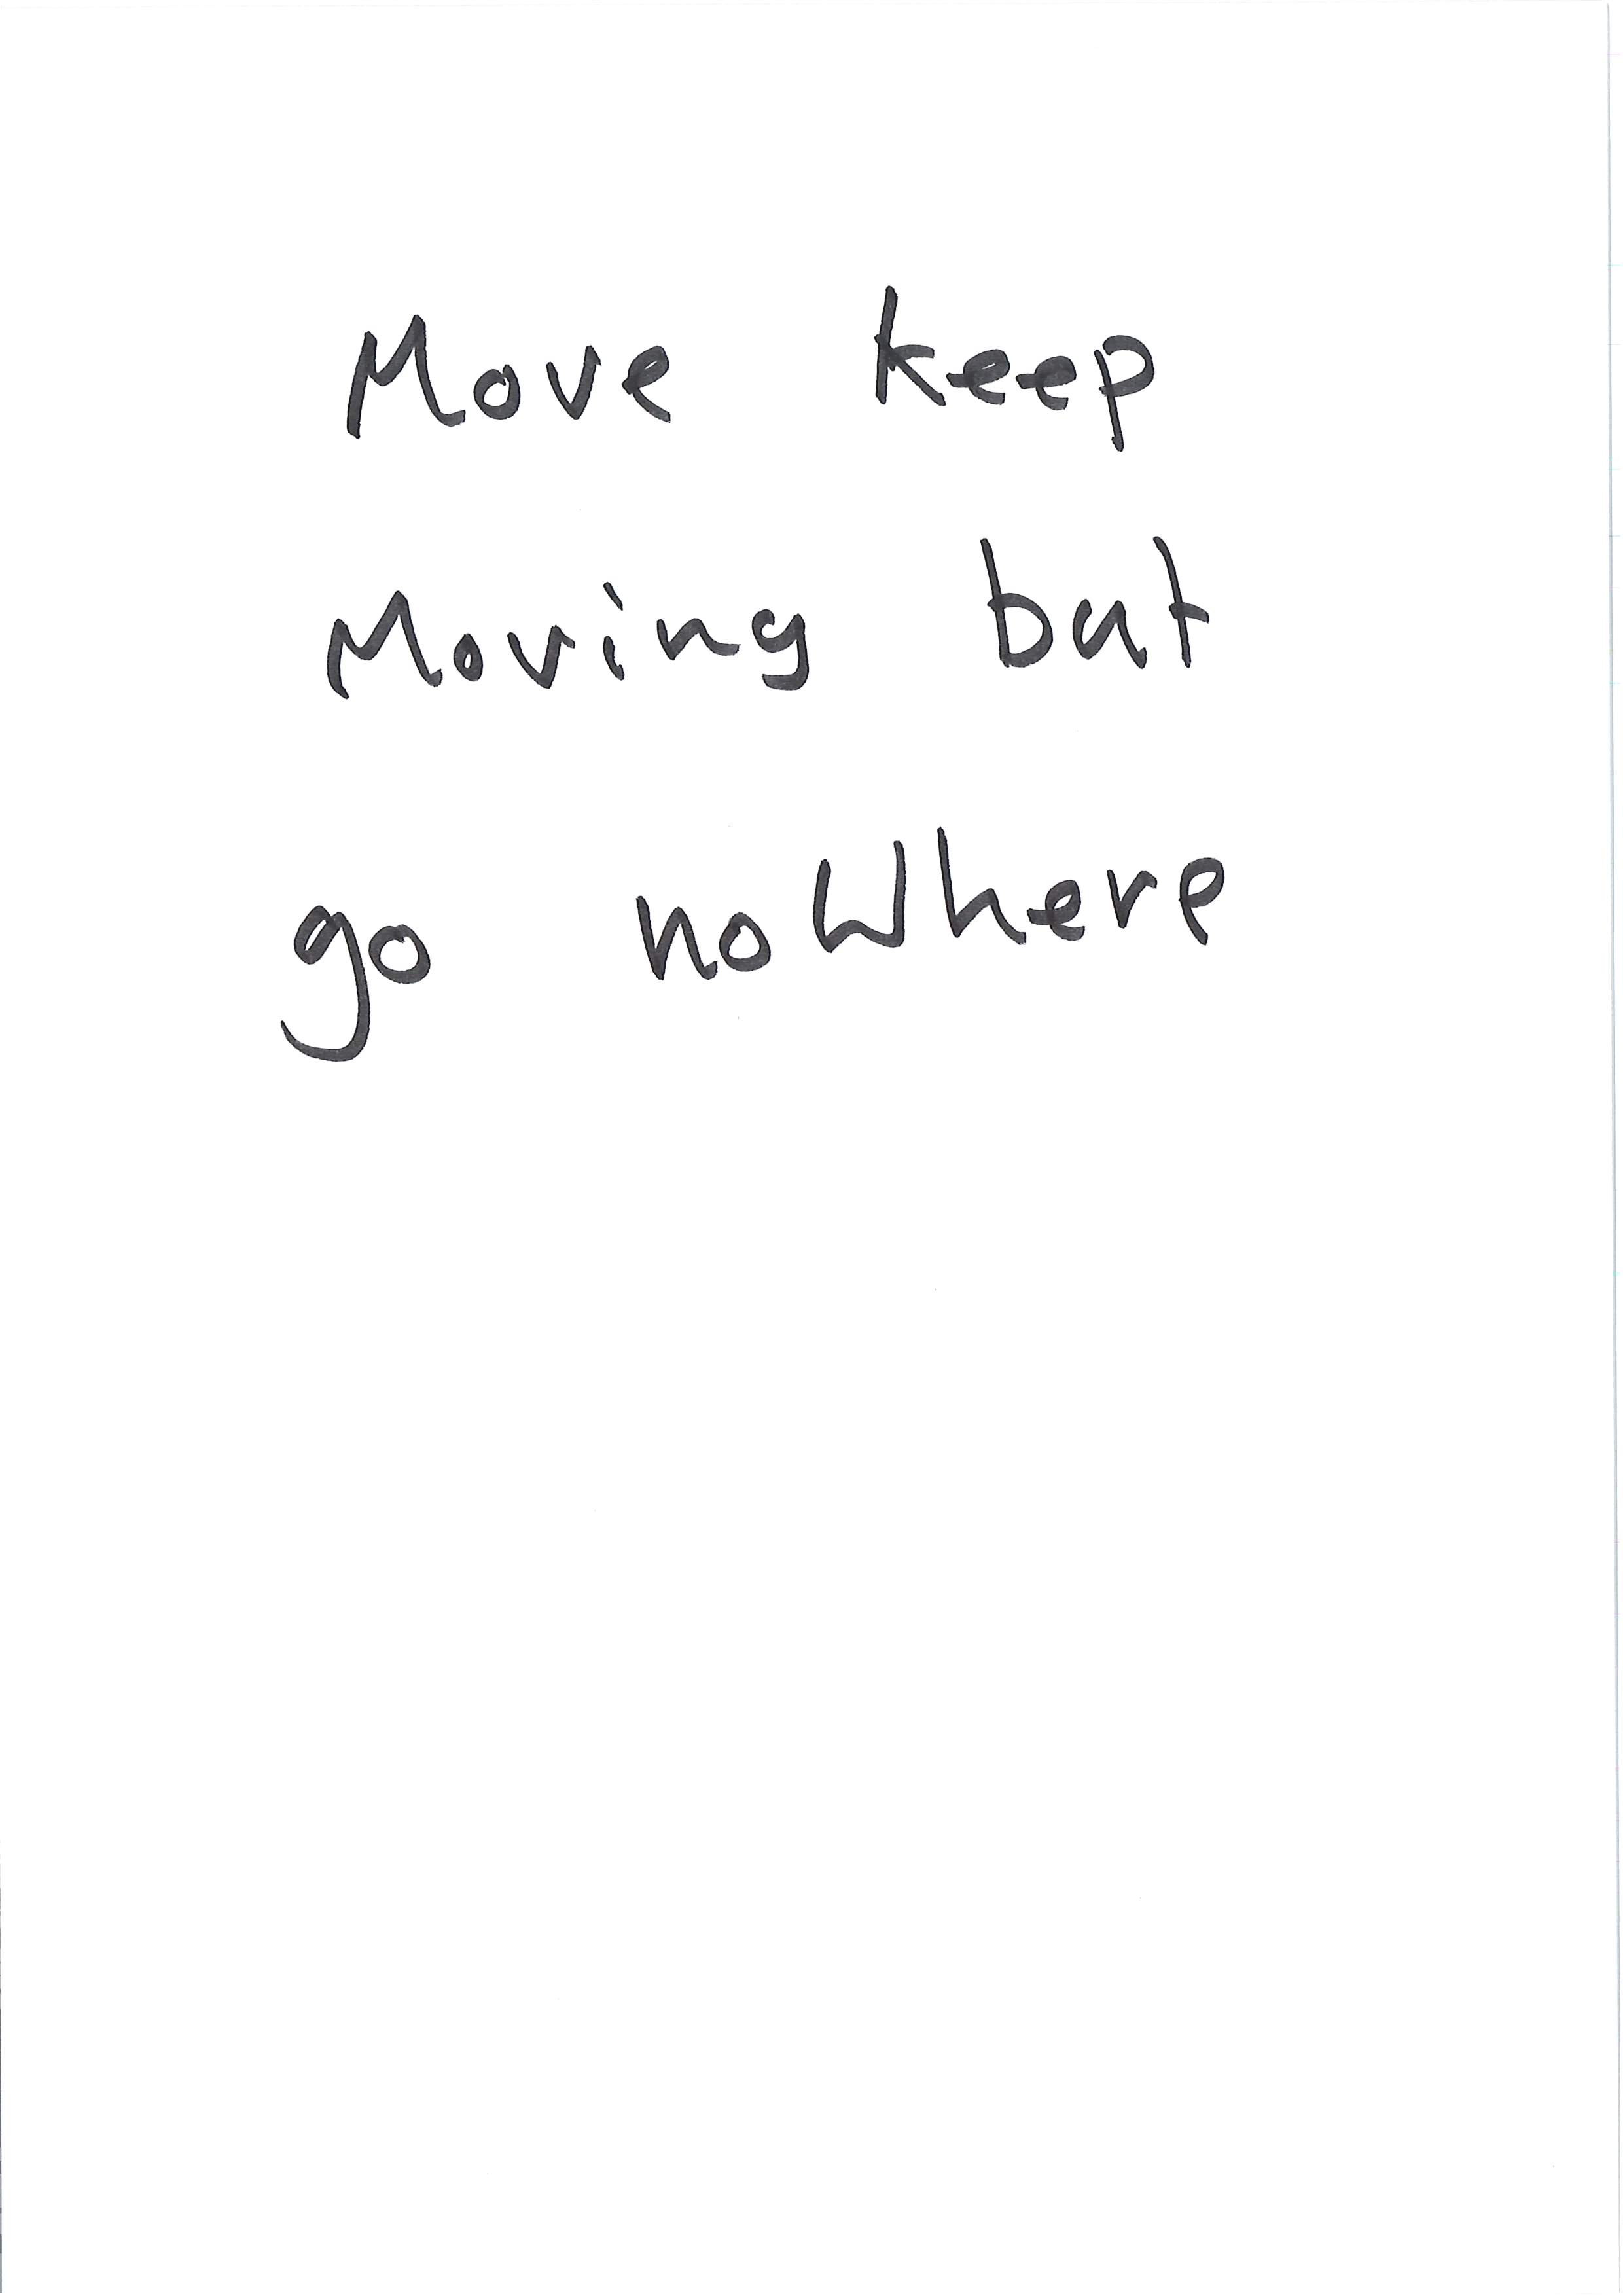 Move keep
Moving but
go noWhere